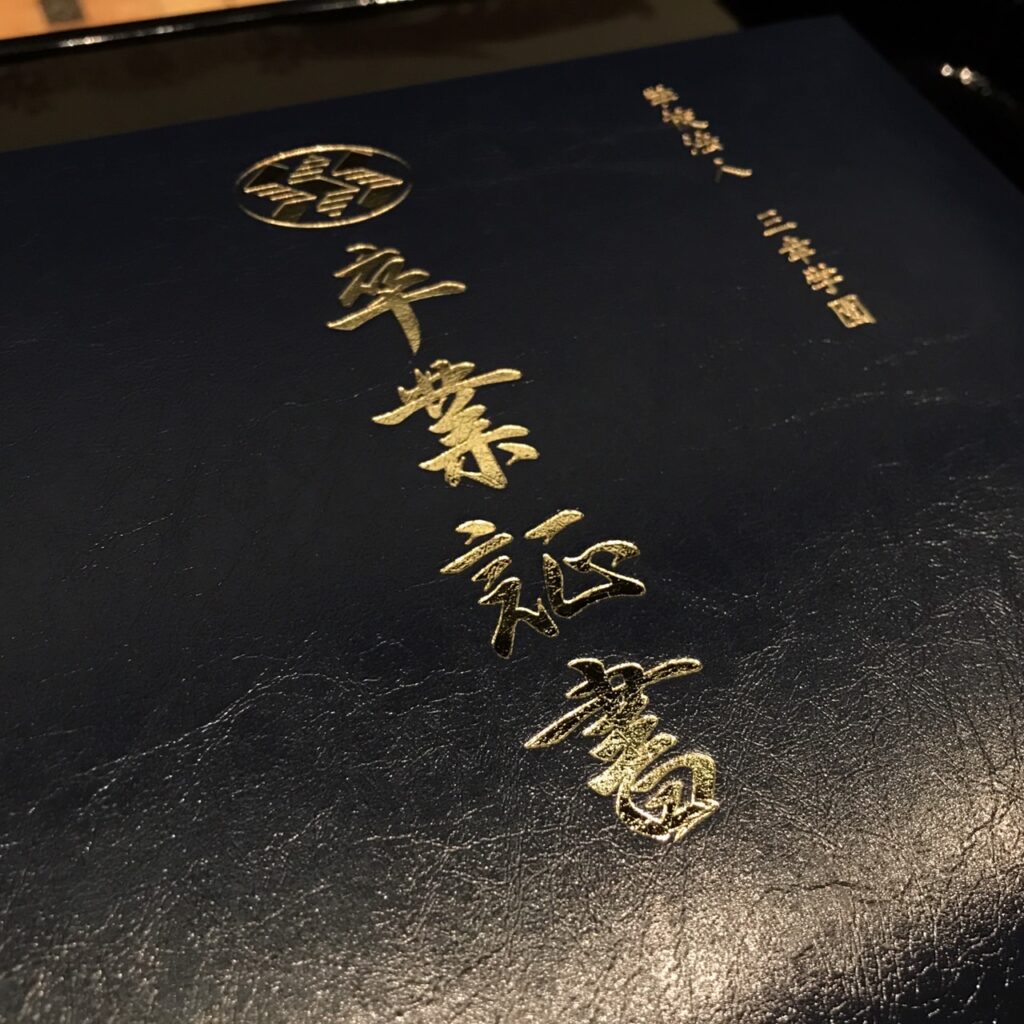 学校法人 三幸学園
卒業証書